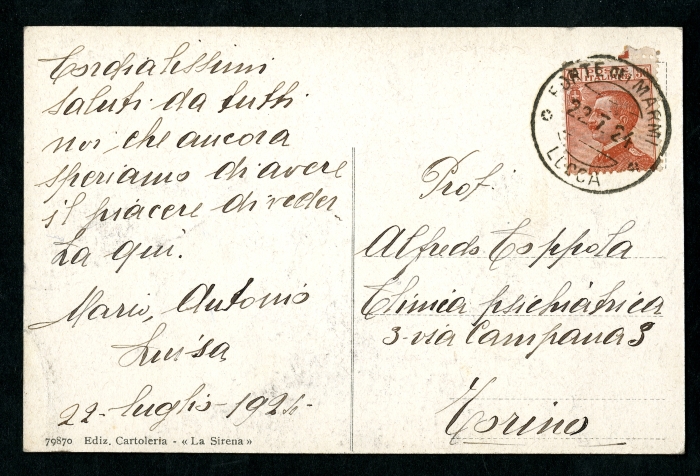 Cordialissimi
saluti da tutti
noi, che ancora
speriamo di avere
il piacere di veder
La qui.
Mario, Antonio
Luisa
22 - luglio - 1924 -
79870 Ediz. Cartoleria - « La Sirena »
FORTE DEI MARMI
22.7.24
LUCCA
Prof.
Alfredo Coppola
Clinica psichiatrica
3 - via Campana 3
Torino